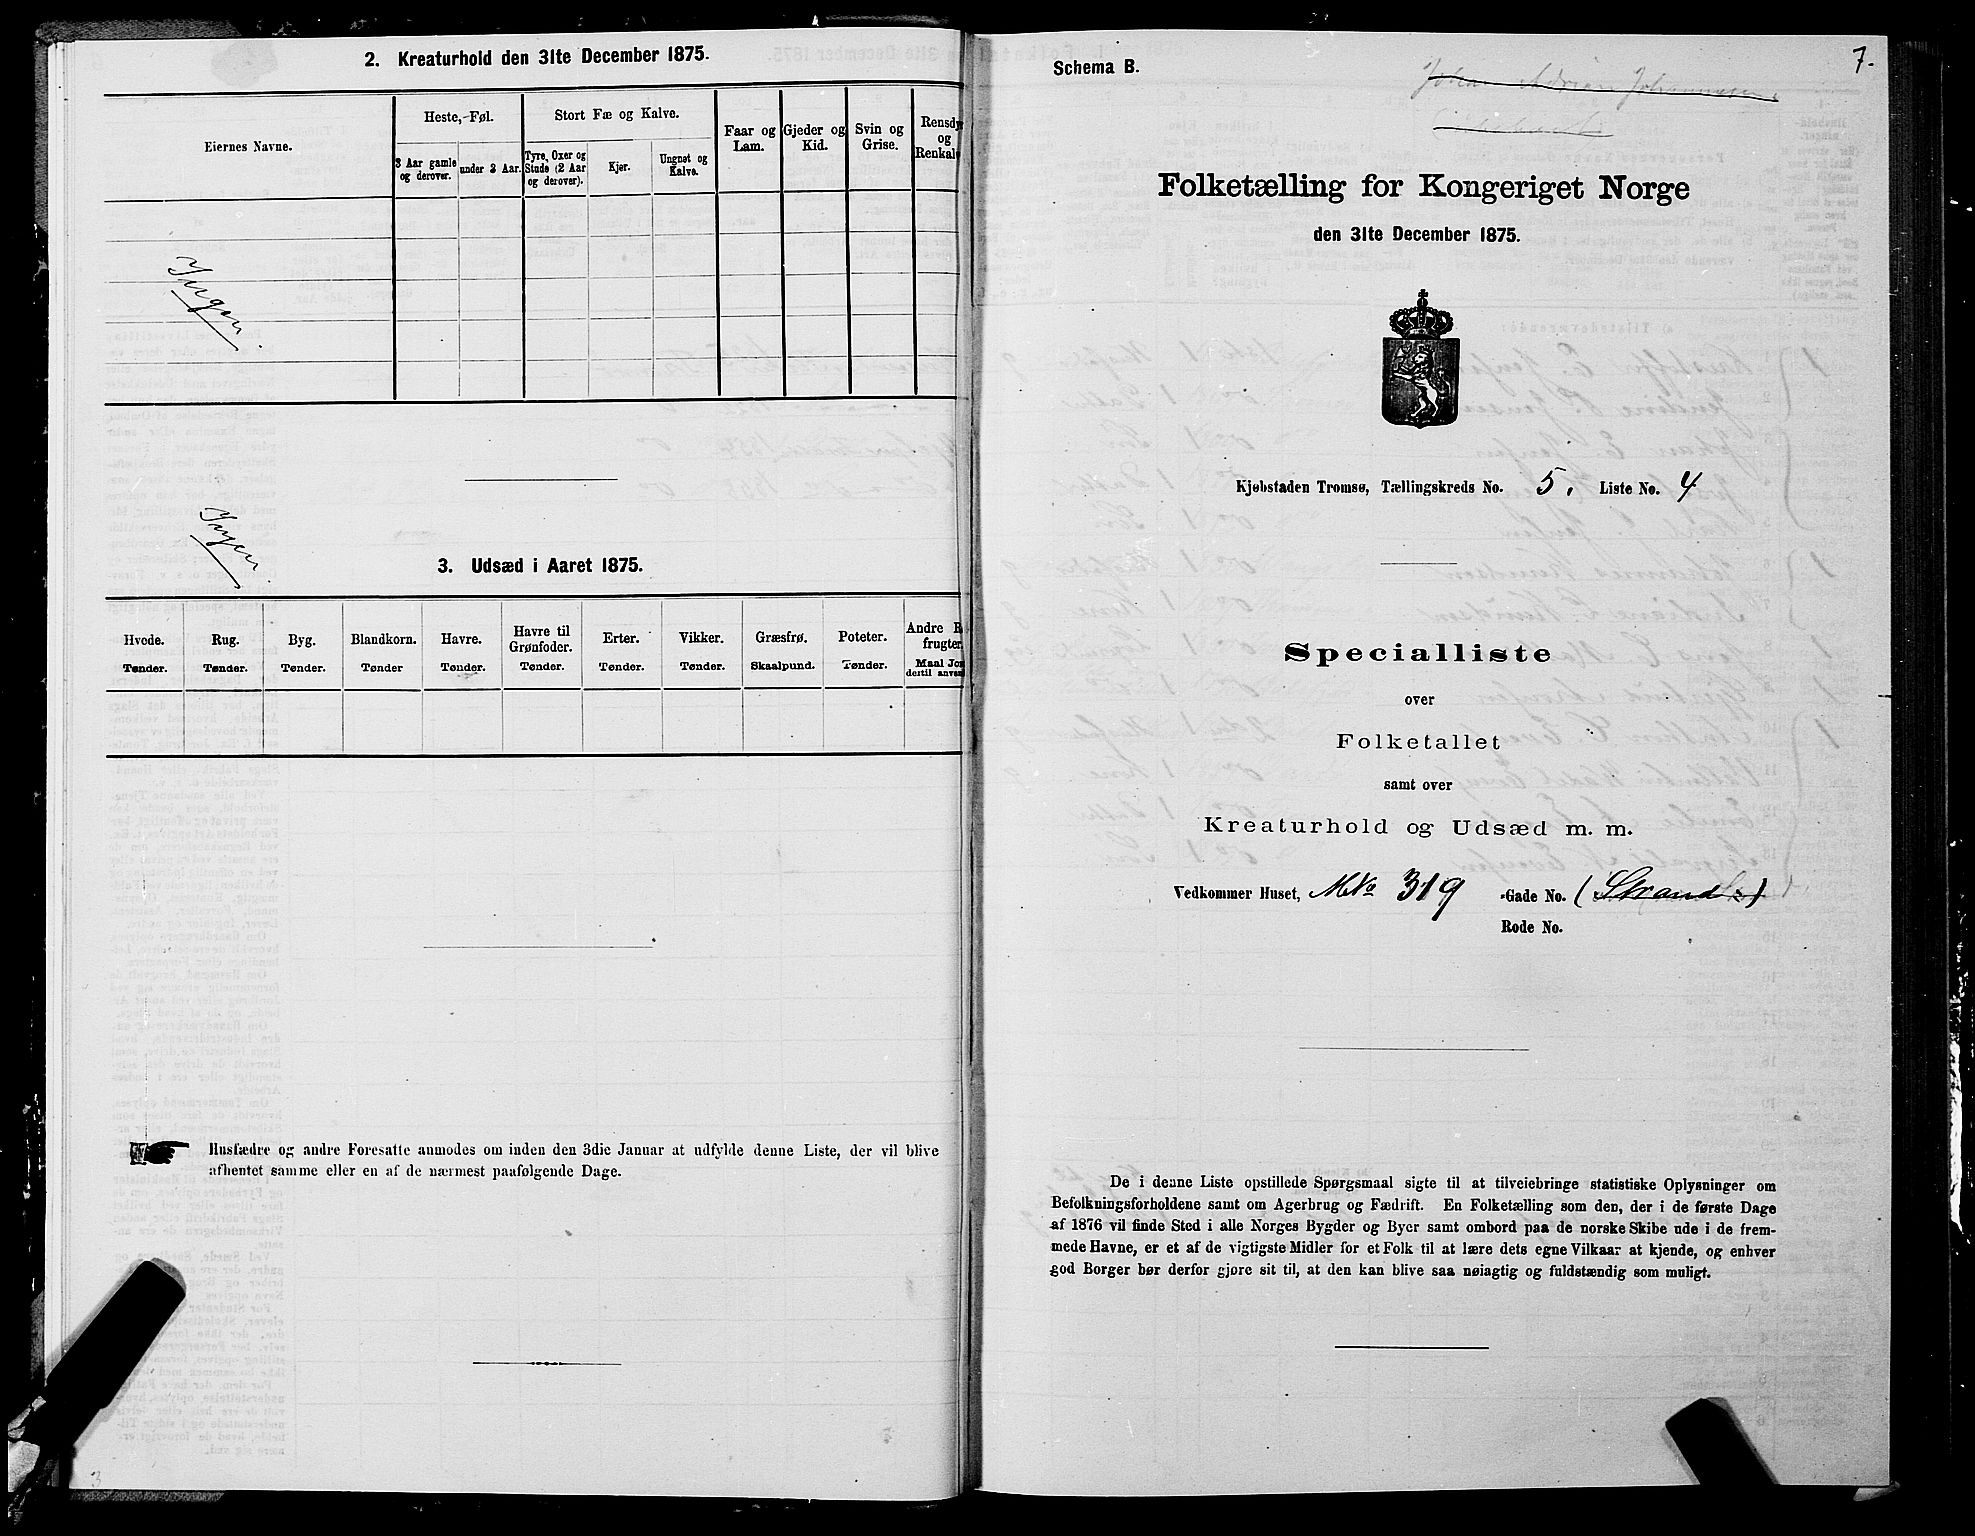 2. Kreaturhold den 31te December 1875.
Eiernes Navne.
Heste,-Føl.
Stort Fæ og Kalve.
Faar og Lam.
Gjeder og Kid.
Svin og Grise.
Rensdy
og
Renkal
3 Aar gamle og derover.
under 3 Aar.
Tyre, Oxer og Stude (2 Aar og derover).
Kjør.
Ungnøt og Kalve.
Ingen
Ingen
3. Udsæd i Aaret 1875.
Hvede.
Rug.
Byg.
Blandkorn.
Havre.
Havre til Grønfoder.
Erter.
Vikker.
Græsfrø.
Poteter.
Andre R
frugter
Tønder.
Tønder.
Tønder.
Tønder
Tønder.
Tønder.
Tønder.
Tønder.
Skaalpund.
Tønder.
Maal Jo
dertil anve
Husfædre og andre Foresatte anmodes om inden den 3die Januar at udfylde denne Liste, der vil blive
afhentet samme eller en af de nærmest paafølgende Dage.
3
7.
Schema B.
Johan Adrian Johannesen
Folketælling for Kongeriget Norge
den 31te December 1875.
Kjøbstaden Tromsø, Tællingskreds No. 5. Liste No. 4
Specialliste
over
Folketallet
samt over
Kreaturhold og Udsæd m. m.
Vedkommer Huset, MNo 319 -Gade No. (Strand
Rode No.
De i denne Liste opstillede Spørgsmaal sigte til at tilveiebringe statistiske Oplysninger om
Befolkningsforholdene samt om Agerbrug og Fædrift. En Folketælling som den, der i de første Dage
af 1876 vil finde Sted i alle Norges Bygder og Byer samt ombord paa de norske Skibe ude i de frem-
mede Havne, er et af de vigtigste Midler for et Folk til at lære dets egne Vilkaar at kjende, og enhver
god Borger bør derfor gjøre sit til, at den kan blive saa nøiagtig og fuldstændig som muligt.